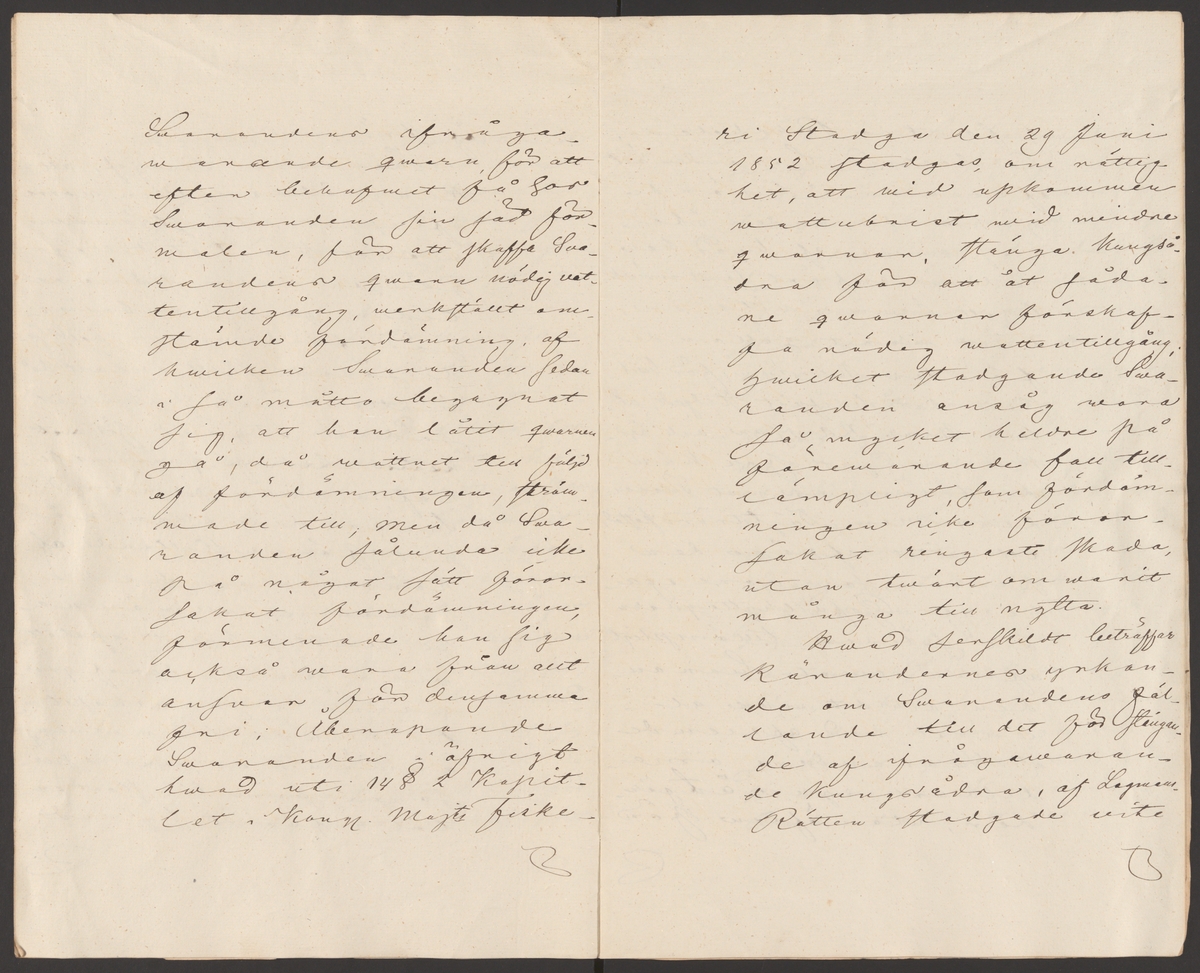 Swarandens ifråga-
warande qwarn, för att
efter behofwet få hos
Swaranden sin säd för-
malen, för att skaffa Swa-
randens qwarn nödig vat-
tentillgång, werkställt om-
stämde fördämning, af
hwilken Swaranden sedan
i så måtto begagnat
sig, att han låtit qwarnen
gå, då wattnet till följd
af fördämningen, ström-
made till, men då Swa-
randen sålunda icke
på något sätt föror-
sakat fördämningen,
förmenade han sig
också wara från allt
answar för densamma
fri; Åberopande
Swaranden i öfrigt
hwad uti 14 § 2 Kapit-
let i Kongl. Majts Fiske-
ri Stadga den 29 Juni
1852 stadgas, om rättig
het, att wid upkommen
wattubrist wid mindre
qwarnar, stänga Kungså-
dra för att åt såda-
ne qwarnar förskaf-
fa nödig wattentillgång,
hwilket stadgande Swa-
randen ansåg wara
så mycket heldre på
förewarande fall till-
lämpligt, som fördäm-
ningen icke föror-
sakat ringaste skada,
utan twärt om warit
många till nytta.
Hwad serskildt beträffar
Kärandernes yrkan-
de om Swarandens fäl-
lande till det för stängan-
de af ifrågawaran-
de Kungsådra, af Lagmans-
Rätten stadgade wite